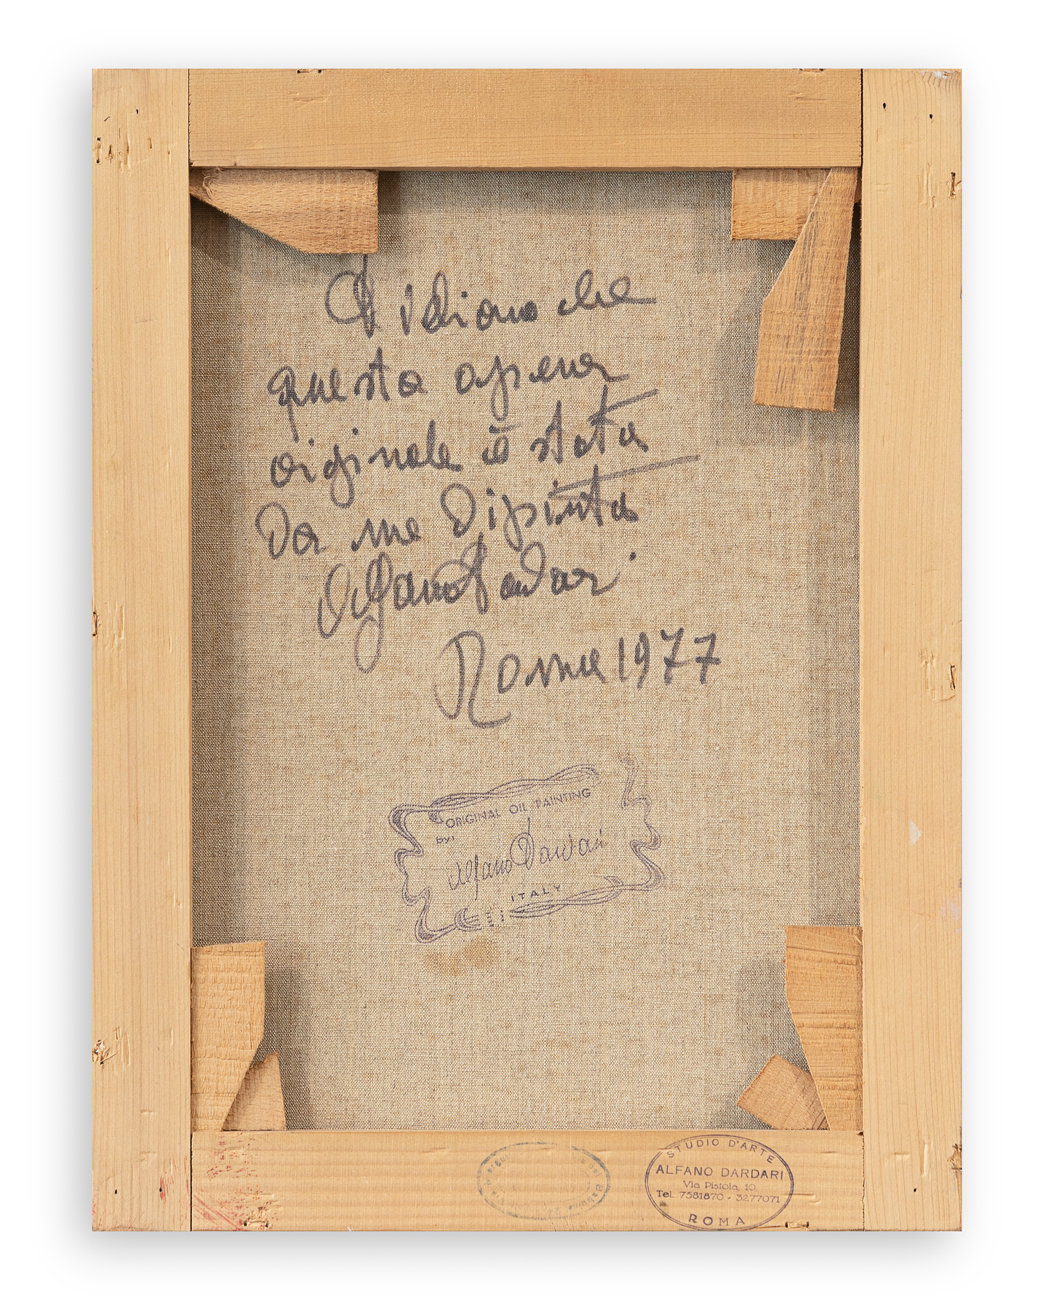 Si dichiara che
questa opera
originale è stata
da me dipinta
Alfano Dardari
Roma 1977
ORIGINAL OIL PAINTING
by:
Alfano Dardari
ITALY
STUDIO D'ARTE
ALFANO DARDARI
Via Pistoia, 10
Tel. 7581870 - 3277071
ROMA